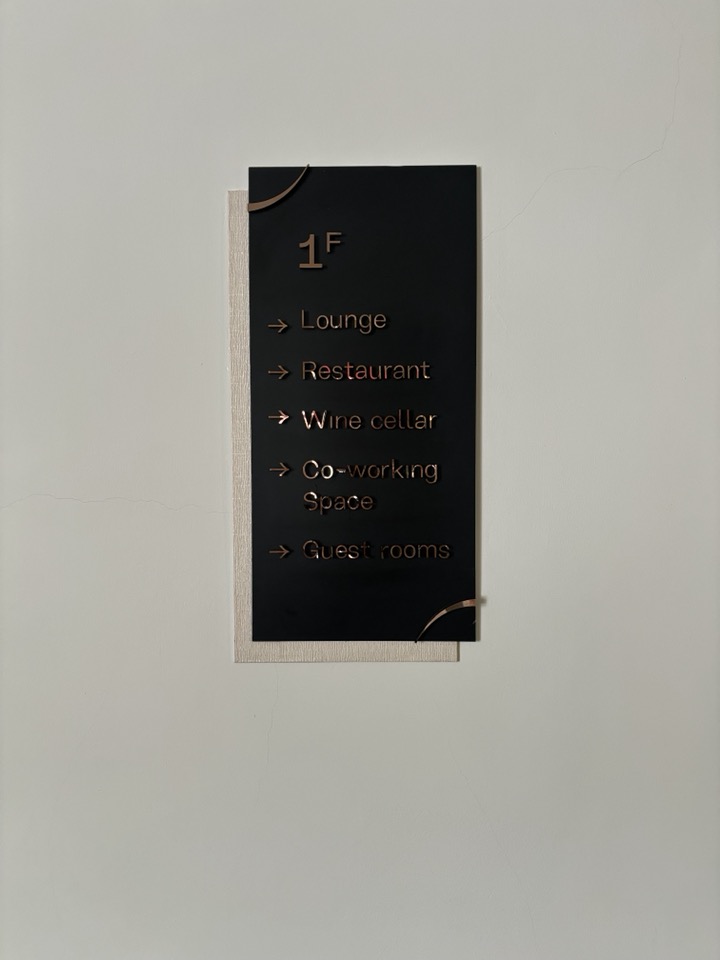 1F
→ Lounge
→ Restaurant
→ Wine cellar
→ Co-working
Space
→ Guest rooms